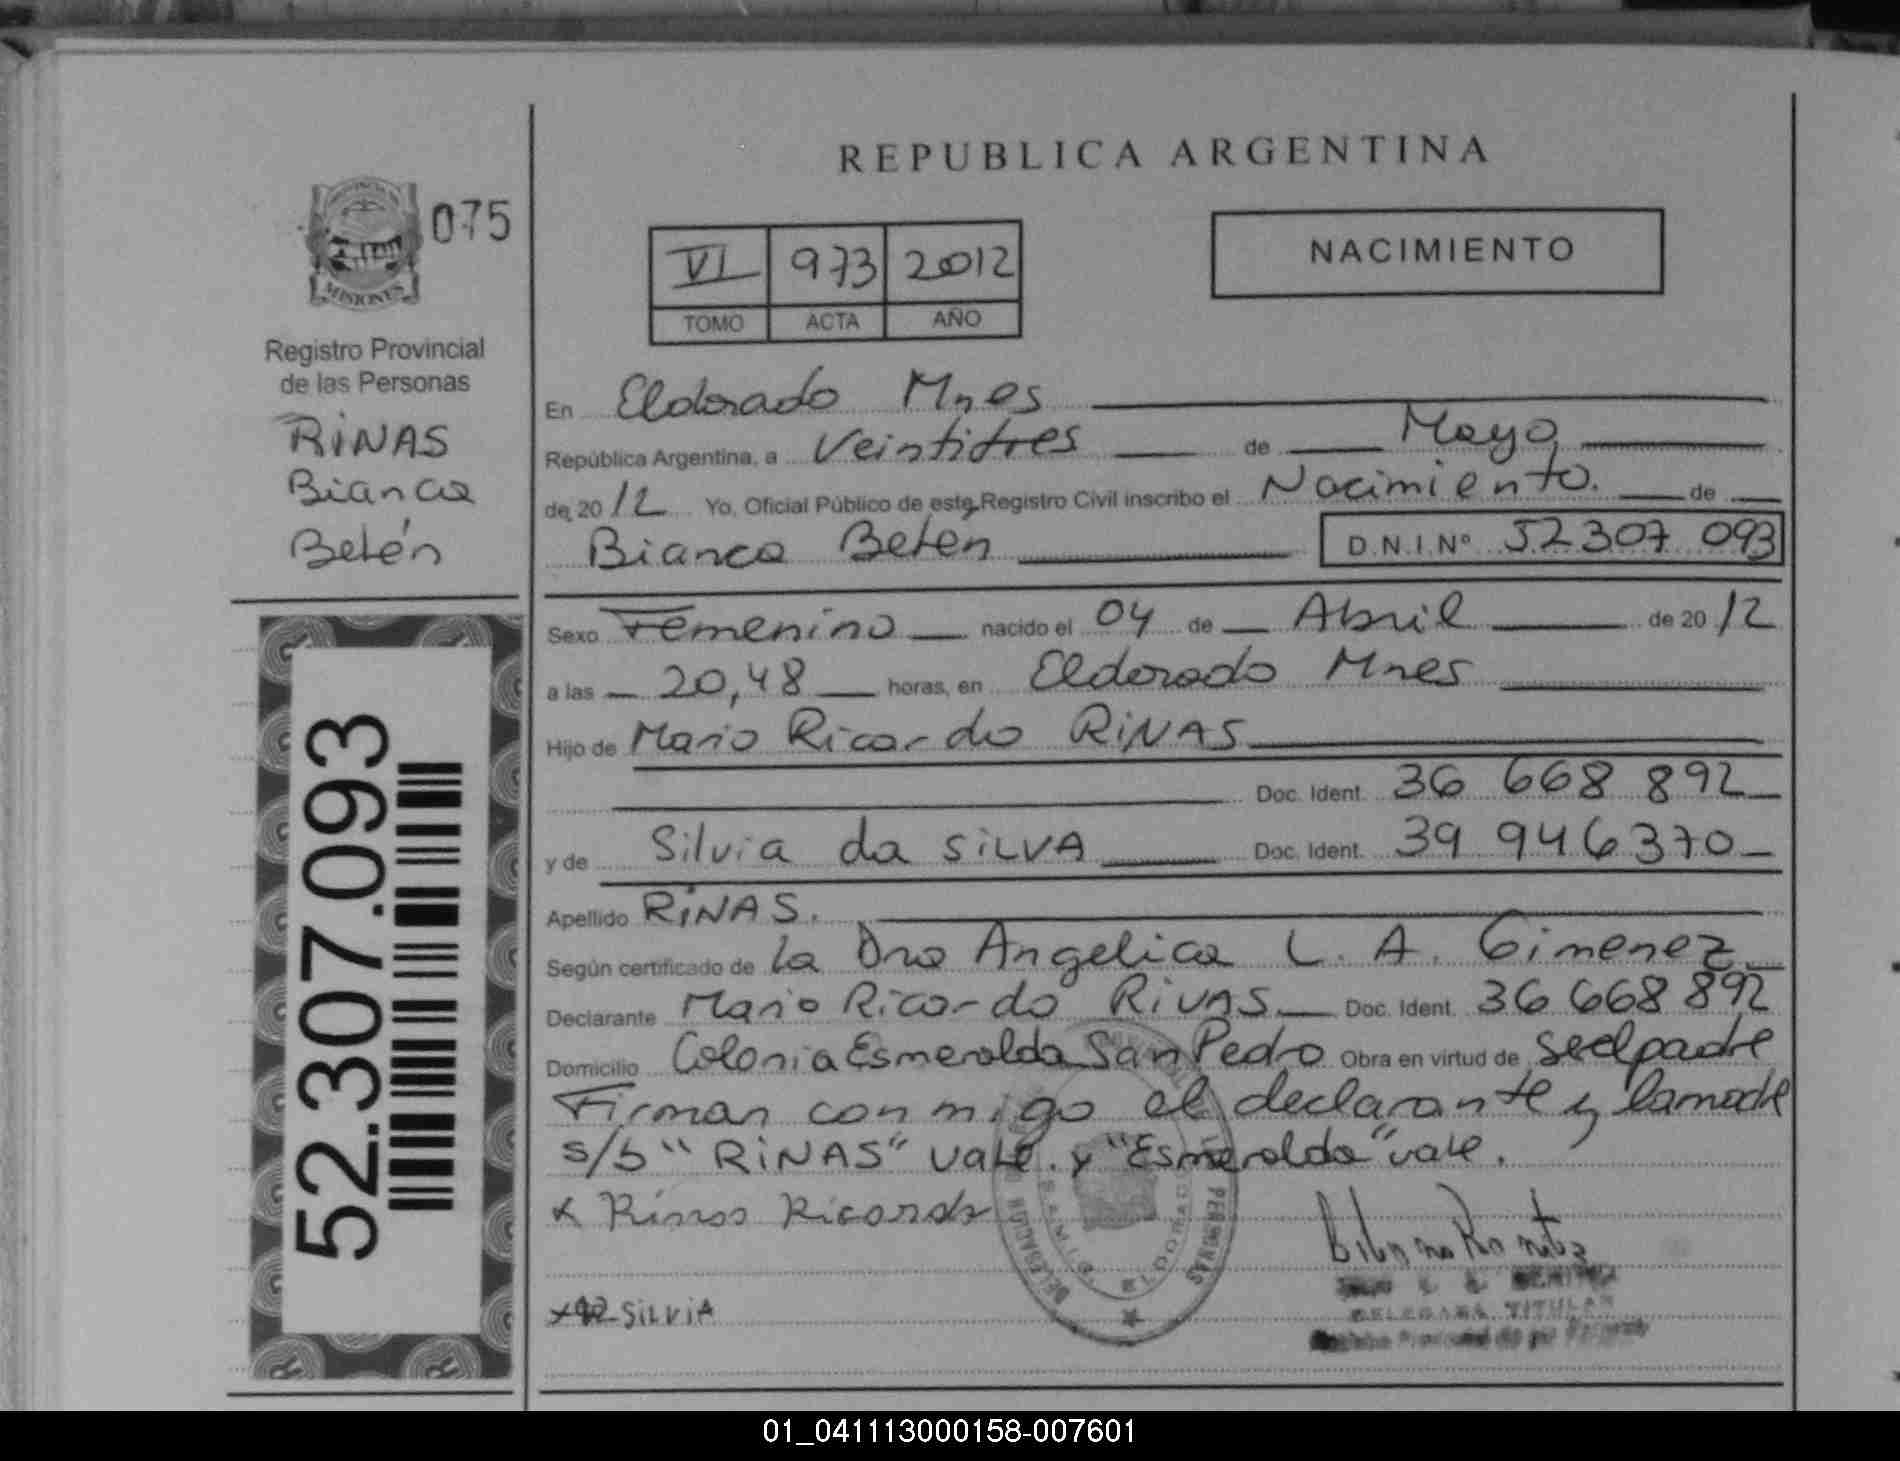 REPUBLICA ARGENTINA
075
MISIONES
Registro Provincial
de las Personas
RINAS
Bianca
Belén
52.307.093
VI 973 2012
TOMO ACTA AÑO
NACIMIENTO
En Eldorado Mnes
República Argentina, a Veintitres de Mayo
de 2012 Yo, Oficial Público de este Registro Civil inscribo el Nacimiento. de
Bianca Belén D.N.I.Nº 52 307 093
Sexo Femenino nacido el 04 de Abril de 2012
a las 20,48 horas, en Eldorado Mnes
Hijo de Mario Ricardo RINAS
Doc. Ident. 36 668 892
y de Silvia da SILVA Doc. Ident. 39 946370
Apellido RINAS.
Según certificado de la Dra Angelica L. A. Gimenez
Declarante Mario Ricardo RIVAS Doc. Ident. 36 668 892
Domicilio Colonia Esmeralda San Pedro Obra en virtud de ser el padre
Firman conmigo el declarante y la madre
s/b "RINAS" vale. y "Esmeralda" vale.
x Rinas Ricardo
SILVIA
DELEGADA TITULAR
01_041113000158-007601